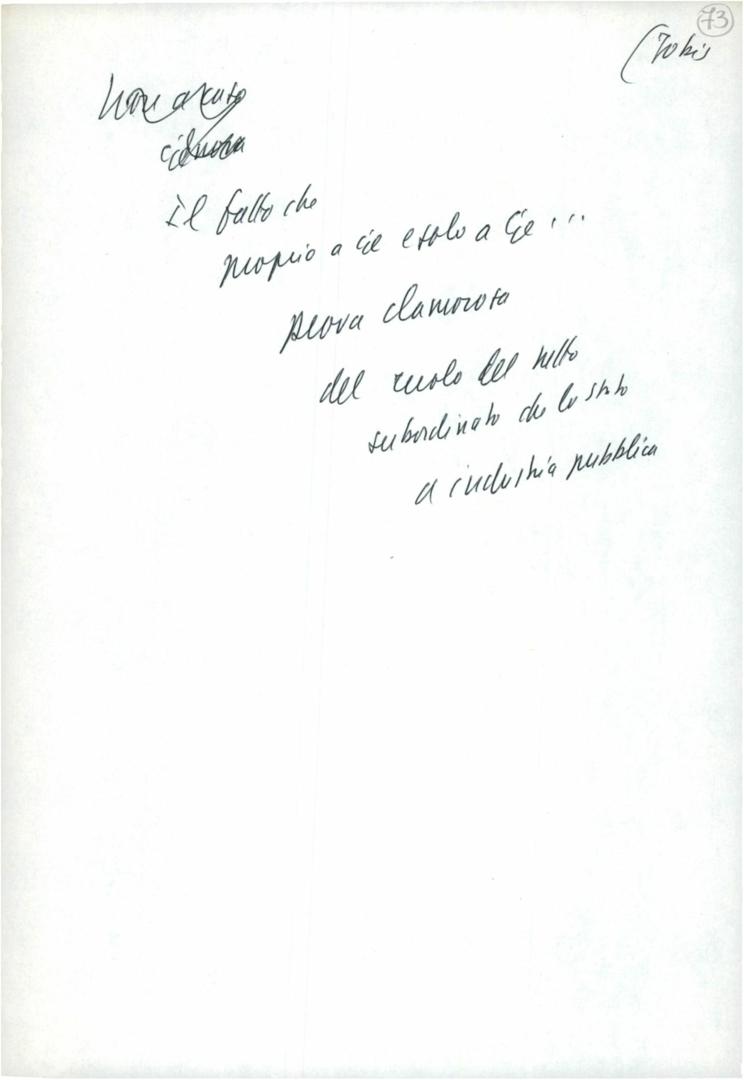 73
(70 bis
Non a caso
Il fatto che
proprio a Cie e solo a Cie...
prova clamorosa
del ruolo del tutto
subordinato che lo stato
a industria pubblica